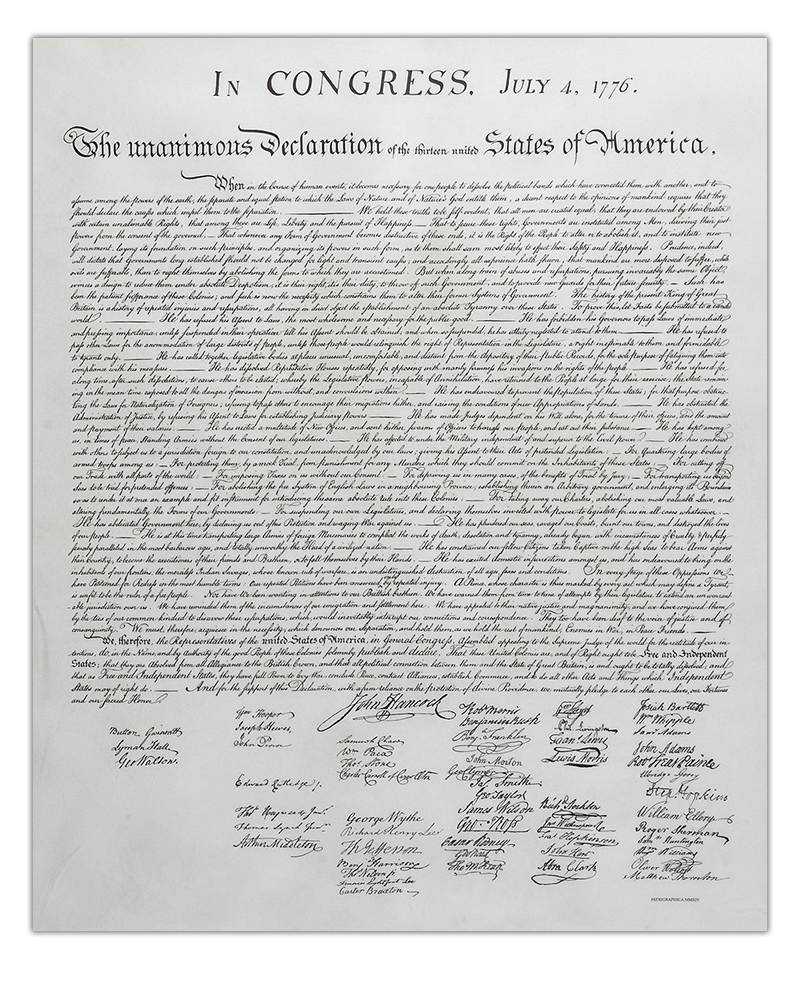 In CONGRESS, July 4, 1776.
The unanimous Declaration of the thirteen united States of America,
When in the Course of human events, it becomes necessary for one people to dissolve the political bands which have connected them with another, and to
assume among the powers of the earth, the separate and equal station to which the Laws of Nature and of Nature's God entitle them, a decent respect to the opinions of mankind requires that they
should declare the causes which impel them to the separation. — We hold these truths to be self-evident, that all men are created equal, that they are endowed by their Creator
with certain unalienable Rights, that among these are Life, Liberty and the pursuit of Happiness. — That to secure these rights, Governments are instituted among Men, deriving their just
powers from the consent of the governed, — That whenever any Form of Government becomes destructive of these ends, it is the Right of the People to alter or to abolish it, and to institute new
Government, laying its foundation on such principles, and organizing its powers in such form, as to them shall seem most likely to effect their Safety and Happiness. Prudence, indeed,
will dictate that Governments long established should not be changed for light and transient causes; and accordingly all experience hath shewn, that mankind are more disposed to suffer, while
evils are sufferable, than to right themselves by abolishing the forms to which they are accustomed. But when a long train of abuses and usurpations, pursuing invariably the same Object
evinces a design to reduce them under absolute Despotism, it is their right, it is their duty, to throw off such Government, and to provide new Guards for their future security. — Such has
been the patient sufferance of these Colonies; and such is now the necessity which constrains them to alter their former Systems of Government. The history of the present King of Great
Britain is a history of repeated injuries and usurpations, all having in direct object the establishment of an absolute Tyranny over these States. To prove this, let Facts be submitted to a candid
world. — He has refused his Assent to Laws, the most wholesome and necessary for the public good. — He has forbidden his Governors to pass Laws of immediate
and pressing importance, unless suspended in their operation till his Assent should be obtained; and when so suspended, he has utterly neglected to attend to them. — He has refused to
pass other Laws for the accommodation of large districts of people, unless those people would relinquish the right of Representation in the Legislature, a right inestimable to them and formidable
to tyrants only. — He has called together legislative bodies at places unusual, uncomfortable, and distant from the depository of their public Records, for the sole purpose of fatiguing them into
compliance with his measures. — He has dissolved Representative Houses repeatedly, for opposing with manly firmness his invasions on the rights of the people. — He has refused for
a long time, after such dissolutions, to cause others to be elected; whereby the Legislative powers, incapable of Annihilation, have returned to the People at large for their exercise; the State remain-
ing in the mean time exposed to all the dangers of invasion from without, and convulsions within. — He has endeavoured to prevent the population of these States; for that purpose obstruc-
ting the Laws for Naturalization of Foreigners; refusing to pass others to encourage their migrations hither, and raising the conditions of new Appropriations of Lands. — He has obstructed the
Administration of Justice, by refusing his Assent to Laws for establishing Judiciary powers. — He has made Judges dependent on his Will alone, for the tenure of their offices, and the amount
and payment of their salaries. — He has erected a multitude of New Offices, and sent hither swarms of Officers to harrass our people, and eat out their substance. — He has kept among
us, in times of peace, Standing Armies without the Consent of our legislatures. — He has affected to render the Military independent of and superior to the Civil power. — He has combined
with others to subject us to a jurisdiction foreign to our constitution, and unacknowledged by our laws; giving his Assent to their Acts of pretended Legislation: — For Quartering large bodies of
armed troops among us: — For protecting them, by a mock Trial, from punishment for any Murders which they should commit on the Inhabitants of these States: — For cutting off
our Trade with all parts of the world: — For imposing Taxes on us without our Consent: — For depriving us in many cases, of the benefits of Trial by Jury: — For transporting us beyond
Seas to be tried for pretended offences — For abolishing the free System of English Laws in a neighbouring Province, establishing therein an Arbitrary government, and enlarging its Boundaries
so as to render it at once an example and fit instrument for introducing the same absolute rule into these Colonies: — For taking away our Charters, abolishing our most valuable Laws, and
altering fundamentally the Forms of our Governments: — For suspending our own Legislatures, and declaring themselves invested with power to legislate for us in all cases whatsoever. —
He has abdicated Government here, by declaring us out of his Protection and waging War against us. — He has plundered our seas, ravaged our Coasts, burnt our towns, and destroyed the lives
of our people. — He is at this time transporting large Armies of foreign Mercenaries to compleat the works of death, desolation and tyranny, already begun with circumstances of Cruelty & perfidy
scarcely paralleled in the most barbarous ages, and totally unworthy the Head of a civilized nation. — He has constrained our fellow Citizens taken Captive on the high Seas to bear Arms against
their Country, to become the executioners of their friends and Brethren, or to fall themselves by their Hands. — He has excited domestic insurrections amongst us, and has endeavoured to bring on the
inhabitants of our frontiers, the merciless Indian Savages, whose known rule of warfare, is an undistinguished destruction of all ages, sexes and conditions. In every stage of these Oppressions We
have Petitioned for Redress in the most humble terms: Our repeated Petitions have been answered only by repeated injury. A Prince, whose character is thus marked by every act which may define a Tyrant,
is unfit to be the ruler of a free people. Nor have We been wanting in attentions to our Brittish brethren. We have warned them from time to time of attempts by their legislature to extend an unwarrant-
able jurisdiction over us. We have reminded them of the circumstances of our emigration and settlement here. We have appealed to their native justice and magnanimity, and we have conjured them
by the ties of our common kindred to disavow these usurpations, which, would inevitably interrupt our connections and correspondence. They too have been deaf to the voice of justice and of
consanguinity. We must, therefore, acquiesce in the necessity, which denounces our Separation, and hold them, as we hold the rest of mankind, Enemies in War, in Peace Friends. —
We, therefore, the Representatives of the united States of America, in General Congress, Assembled, appealing to the Supreme Judge of the world for the rectitude of our in-
tentions, do, in the Name, and by Authority of the good People of these Colonies, solemnly publish and declare, That these United Colonies are, and of Right ought to be Free and Independent
States; that they are Absolved from all Allegiance to the British Crown, and that all political connection between them and the State of Great Britain, is and ought to be totally dissolved; and
that as Free and Independent States, they have full Power to levy War, conclude Peace, contract Alliances, establish Commerce, and to do all other Acts and Things which Independent
States may of right do. — And for the support of this Declaration, with a firm reliance on the protection of divine Providence, we mutually pledge to each other our Lives, our Fortunes
and our sacred Honor.
Button Gwinnett
Lyman Hall
Geo Walton.
Wm Hooper
Joseph Hewes,
John Penn
Edward Rutledge /.
Thos Heyward Junr.
Thomas Lynch Junr.
Arthur Middleton
John Hancock
Samuel Chase
Wm Paca
Thos Stone
Charles Carroll of Carrollton
George Wythe
Richard Henry Lee
Th Jefferson
Benj Harrison
Thos Nelson jr.
Francis Lightfoot Lee
Carter Braxton
Robt Morris
Benjamin Rush
Benj. Franklin
John Morton
Geo Clymer
Jas. Smith
Geo. Taylor
James Wilson
Geo. Ross
Caesar Rodney
Geo Read
Tho M:Kean
Wm Floyd
Phil. Livingston
Frans. Lewis
Lewis Morris
Richd. Stockton
Jno Witherspoon
Fras. Hopkinson
John Hart
Abra Clark
Josiah Bartlett
Wm Whipple
Saml Adams
John Adams
Robt Treat Paine
Elbridge Gerry
Step. Hopkins
William Ellery
Roger Sherman
Saml Huntington
Wm Williams
Oliver Wolcott
Matthew Thornton
PATRIGRAPHICA MMXIV